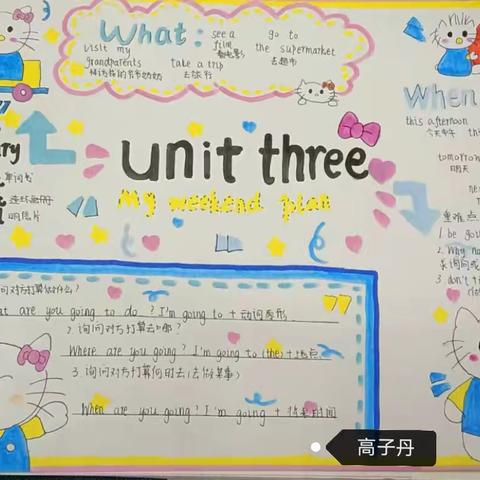 What:
see a film
看电影
go to the supermarket
去超市
visit my grandparents
take a trip
去旅行
When
this afternoon
今天下午
tomorrow
明天
unit three
My weekend plan
单词书
连环画册
明信片
重难点
1. be going
2. Why
3. don't
What are you going to do ? I'm going to + 动词原形.
2. 询问对方打算去哪?
Where are you going? I'm going to (the) + 地点
3. 询问对方打算何时去(去做某事)
When are you going? I'm going + 将来时间
高子丹